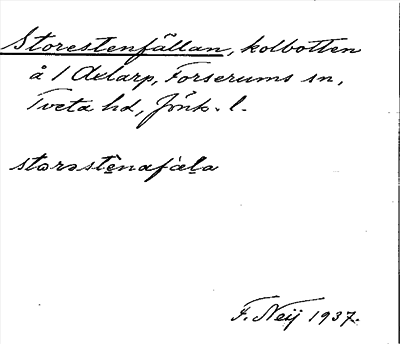 Storestenfällan, kolbotten
å 1 Axlarp, Forserums sn,
Tveta hd, Jönk. l.
storəstẹnafäḷa
F. Neij 1937.